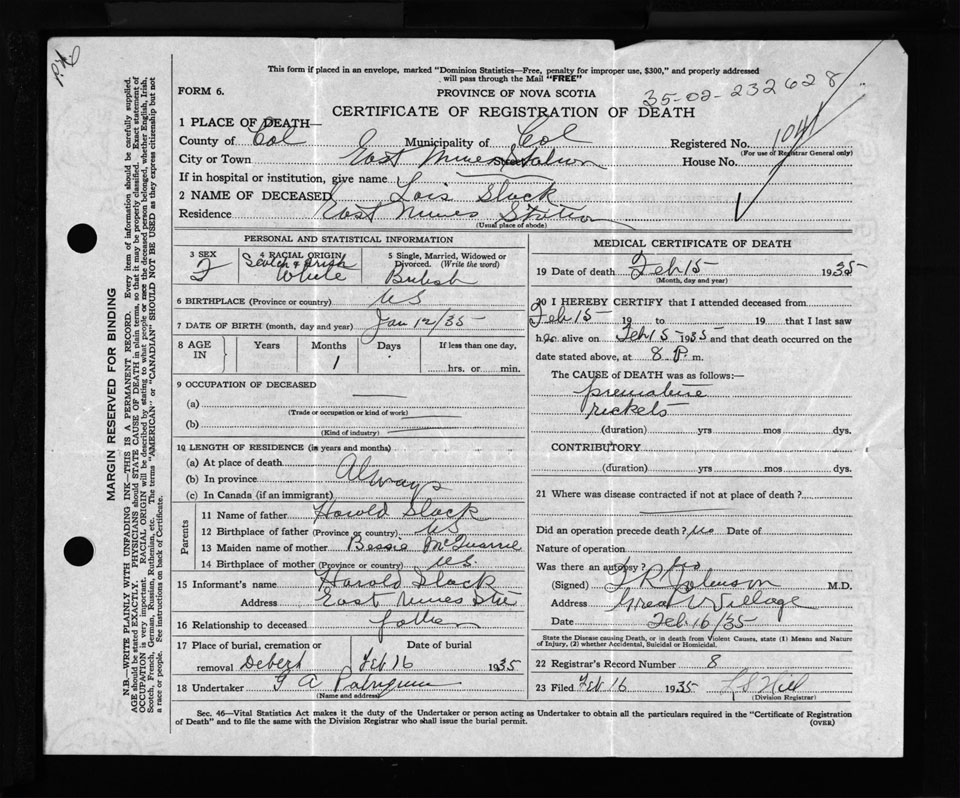 P.H.
This form if placed in an envelope, marked "Dominion Statistics—Free, penalty for improper use, $300," and properly addressed
will pass through the Mail "FREE"
FORM 6.
PROVINCE OF NOVA SCOTIA
35-02-232628
CERTIFICATE OF REGISTRATION OF DEATH
1 PLACE OF DEATH—
County of Col Municipality of Col Registered No. 1041
(For use of Registrar General only)
City or Town East Mines Station House No.
If in hospital or institution, give name
2 NAME OF DECEASED Lois Slack
Residence East Mines Station
(Usual place of abode)
PERSONAL AND STATISTICAL INFORMATION
3 SEX
F
4 RACIAL ORIGIN
Scotch & Irish
White
5 Single, Married, Widowed or
Divorced. (Write the word)
British
6 BIRTHPLACE (Province or country) NS
7 DATE OF BIRTH (month, day and year) Jan 12/35
8 AGE
IN
Years
Months
1
Days
If less than one day,
hrs. or min.
9 OCCUPATION OF DECEASED
(a)
(Trade or occupation or kind of work)
(b)
(Kind of industry)
10 LENGTH OF RESIDENCE (in years and months)
(a) At place of death
(b) In province Always
(c) In Canada (if an immigrant)
Parents
11 Name of father Harold Slack
12 Birthplace of father (Province or country) NS
13 Maiden name of mother Bessie
14 Birthplace of mother (Province or country) NS.
15 Informant's name Harold Slack
Address East Mines Sta
16 Relationship to deceased father
17 Place of burial, cremation or
removal Debert
Date of burial
Feb 16 1935
18 Undertaker G A Patriquin
(Name and address)
MEDICAL CERTIFICATE OF DEATH
19 Date of death Feb 15 1935
(Month, day and year)
20 I HEREBY CERTIFY that I attended deceased from
Feb 15 19 to 19 that I last saw
her alive on Feb 15 1935 and that death occurred on the
date stated above, at 8 P. m.
The CAUSE of DEATH was as follows:—
premature
rickets
(duration) yrs mos dys.
CONTRIBUTORY
(duration) yrs mos dys.
21 Where was disease contracted if not at place of death?
Did an operation precede death? no Date of
Nature of operation
Was there an autopsy? no
(Signed) T R Johnson M.D.
Address Great Village
Date Feb 16/35
State the Disease causing Death, or in death from Violent Causes, state (1) Means and Nature
of Injury, (2) whether Accidental, Suicidal or Homicidal.
22 Registrar's Record Number 8
23 Filed Feb 16 1935 Hill
(Division Registrar)
Sec. 46—Vital Statistics Act makes it the duty of the Undertaker or person acting as Undertaker to obtain all the particulars required in the "Certificate of Registration
of Death" and to file the same with the Division Registrar who shall issue the burial permit.
(OVER)
MARGIN RESERVED FOR BINDING
N.B.—WRITE PLAINLY WITH UNFADING INK—THIS IS A PERMANENT RECORD. Every item of information should be carefully supplied.
AGE should be stated EXACTLY. PHYSICIANS should STATE CAUSE OF DEATH in plain terms, so that it may be properly classified. Exact statement of
OCCUPATION is very important. RACIAL ORIGIN will be described by stating to what people or race the deceased person belonged, whether English, Irish,
Scotch, French, German, Russian, Ruthenian, etc. The terms "AMERICAN" or "CANADIAN" SHOULD NOT BE USED as they express citizenship but not
a race or people. See instructions on back of Certificate.